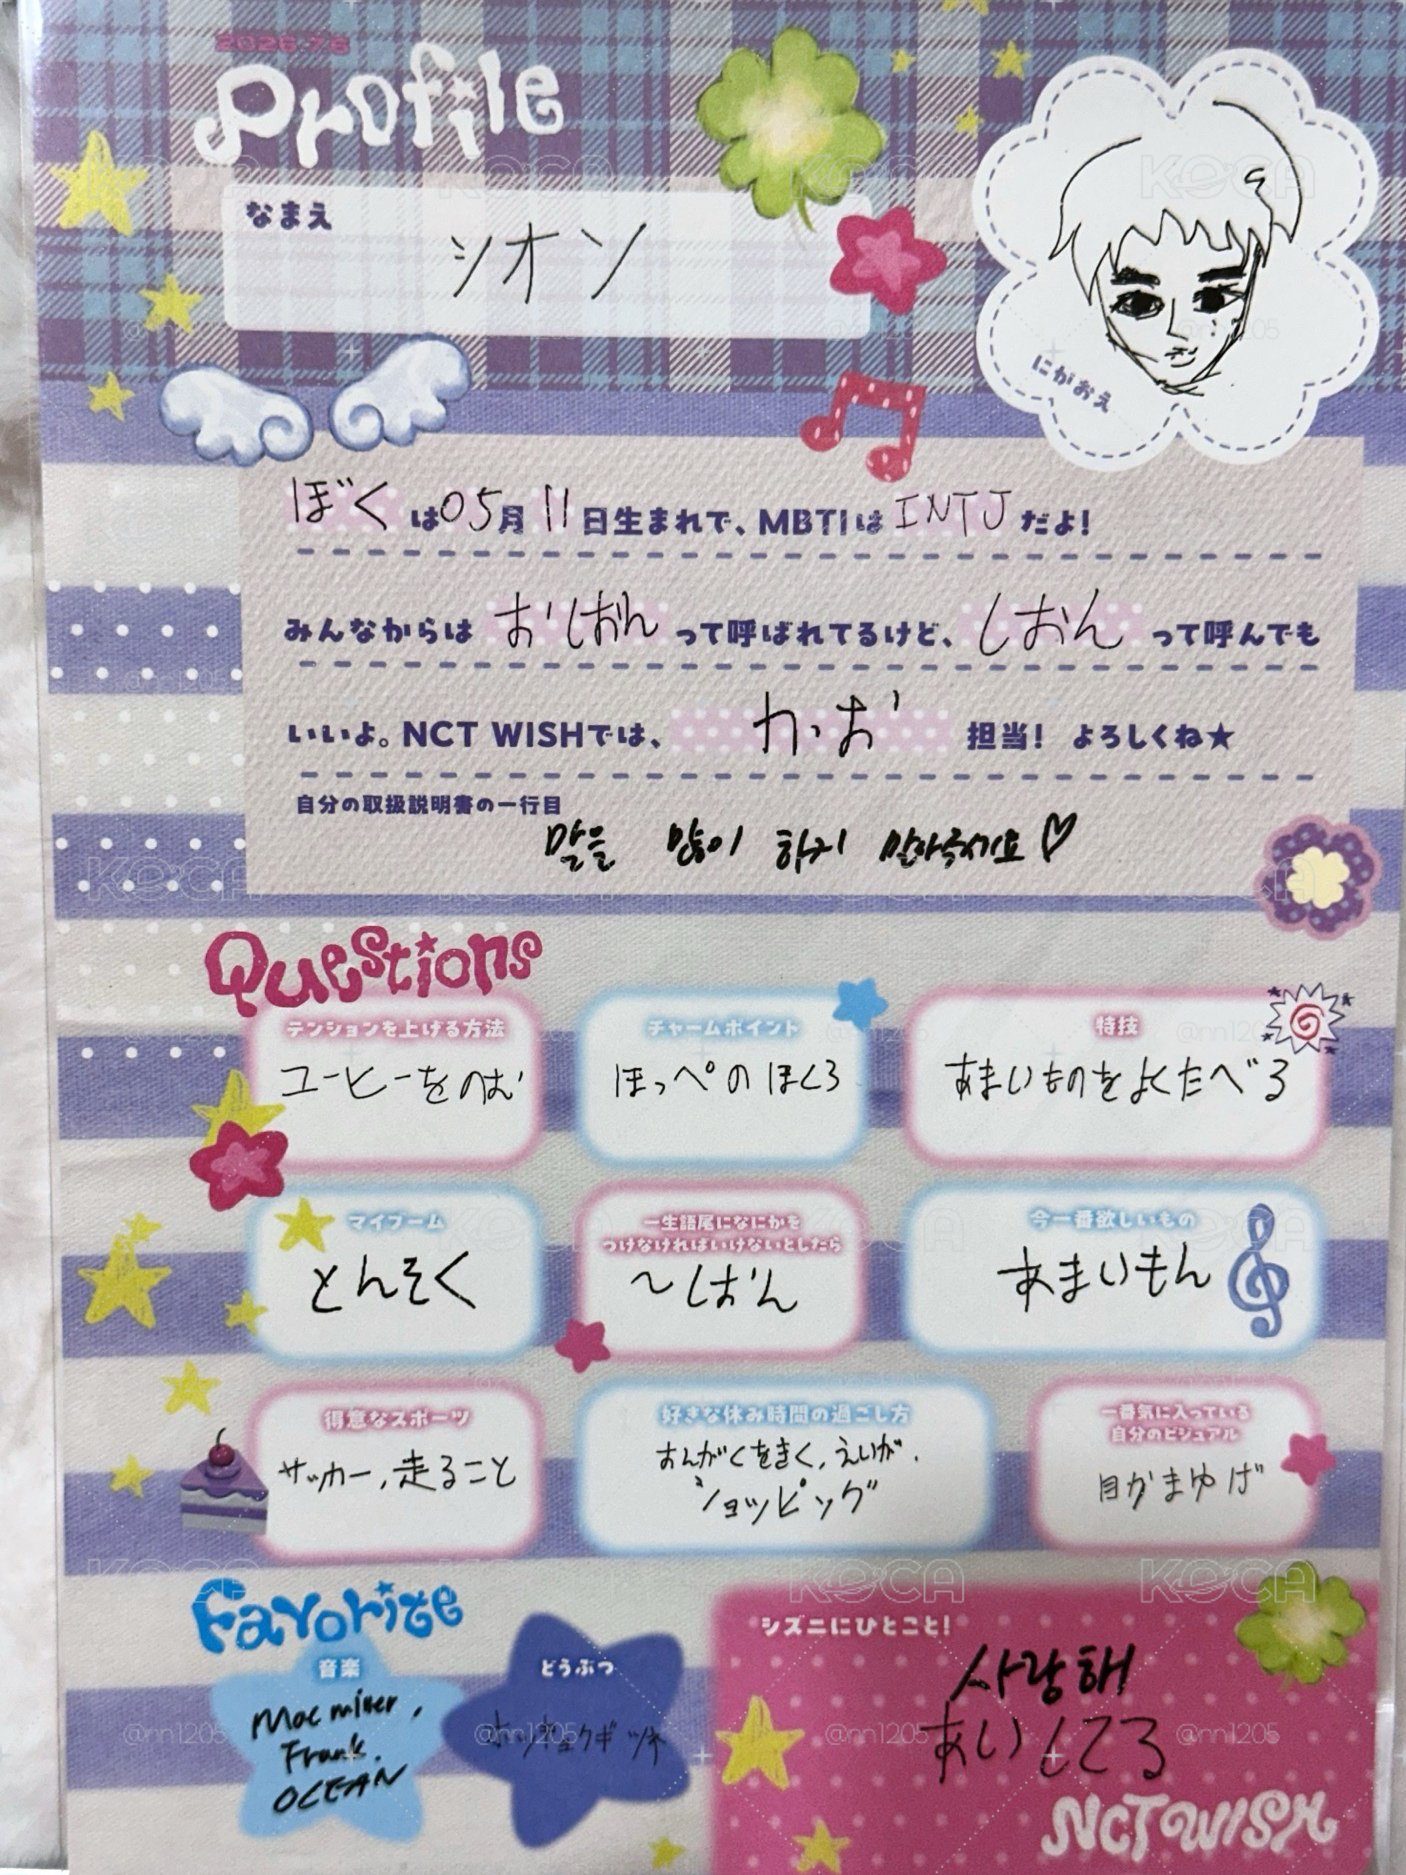 2026.7.6
Profile
なまえ
シオン
にがおえ
ぼくは05月11日生まれで、MBTIはINTJだよ!
みんなからは おしおん って呼ばれてるけど、しおん って呼んでも
いいよ。NCT WISHでは、かお 担当! よろしくね★
自分の取扱説明書の一行目
말을 많이 하지 말아주세요♡
Questions
テンションを上げる方法
コーヒーをのむ
チャームポイント
ほっぺのほくろ
特技
あまいものをよくたべる
マイブーム
とんそく
一生語尾になにかを
つけなければいけないとしたら
〜しおん
今一番欲しいもの
あまいもん
得意なスポーツ
サッカー,走ること
好きな休み時間の過ごし方
おんがくをきく,えいが,
ショッピング
一番気に入っている
自分のビジュアル
目かまゆげ
Favorite
音楽
Mac miller,
Frank.
OCEAN
どうぶつ
ホッキョクギツネ
シズニにひとこと!
사랑해
あいしてる
NCT WISH
KOCA
@nn1205